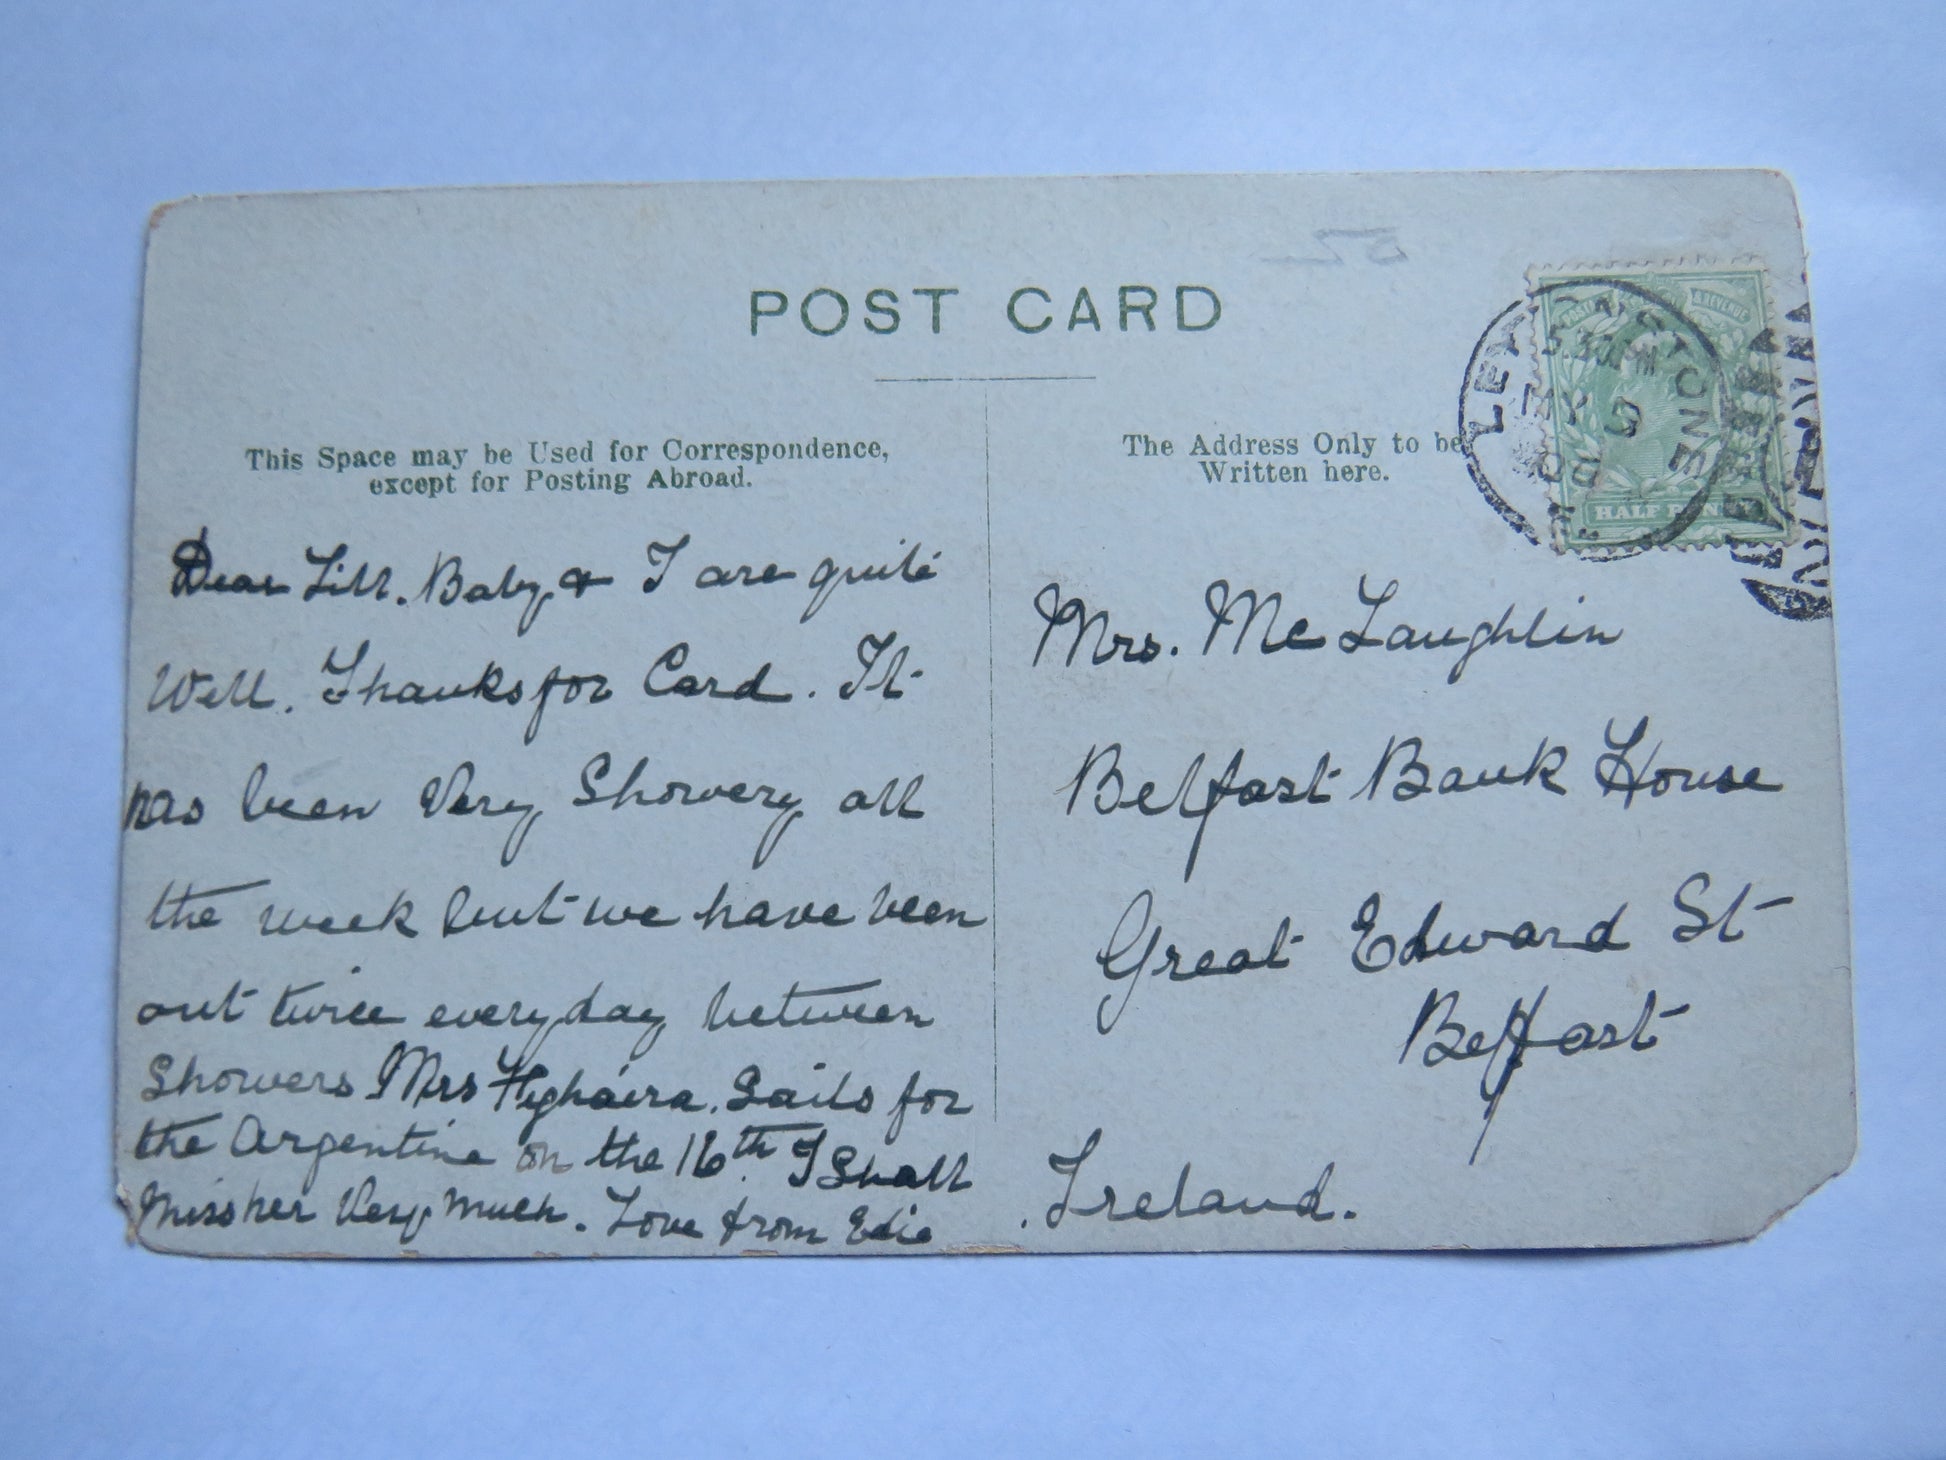 POST CARD
This Space may be Used for Correspondence,
except for Posting Abroad.
Dear Lill. Baby & I are quite
Well. Thanks for Card. It
has been Very Showery all
the week but we have been
out twice every day between
Showers Mrs Sails for
the Argentine on the 16th. I Shall
Miss her Very much. Love from Edie
The Address Only to be
Written here.
LEYTONSTONE
5.30 PM
MY 9
08
POSTAGE & REVENUE
HALF PENNY
Mrs. Mc Laughlin
Belfast Bank House
Great Edward St
Belfast
Ireland.